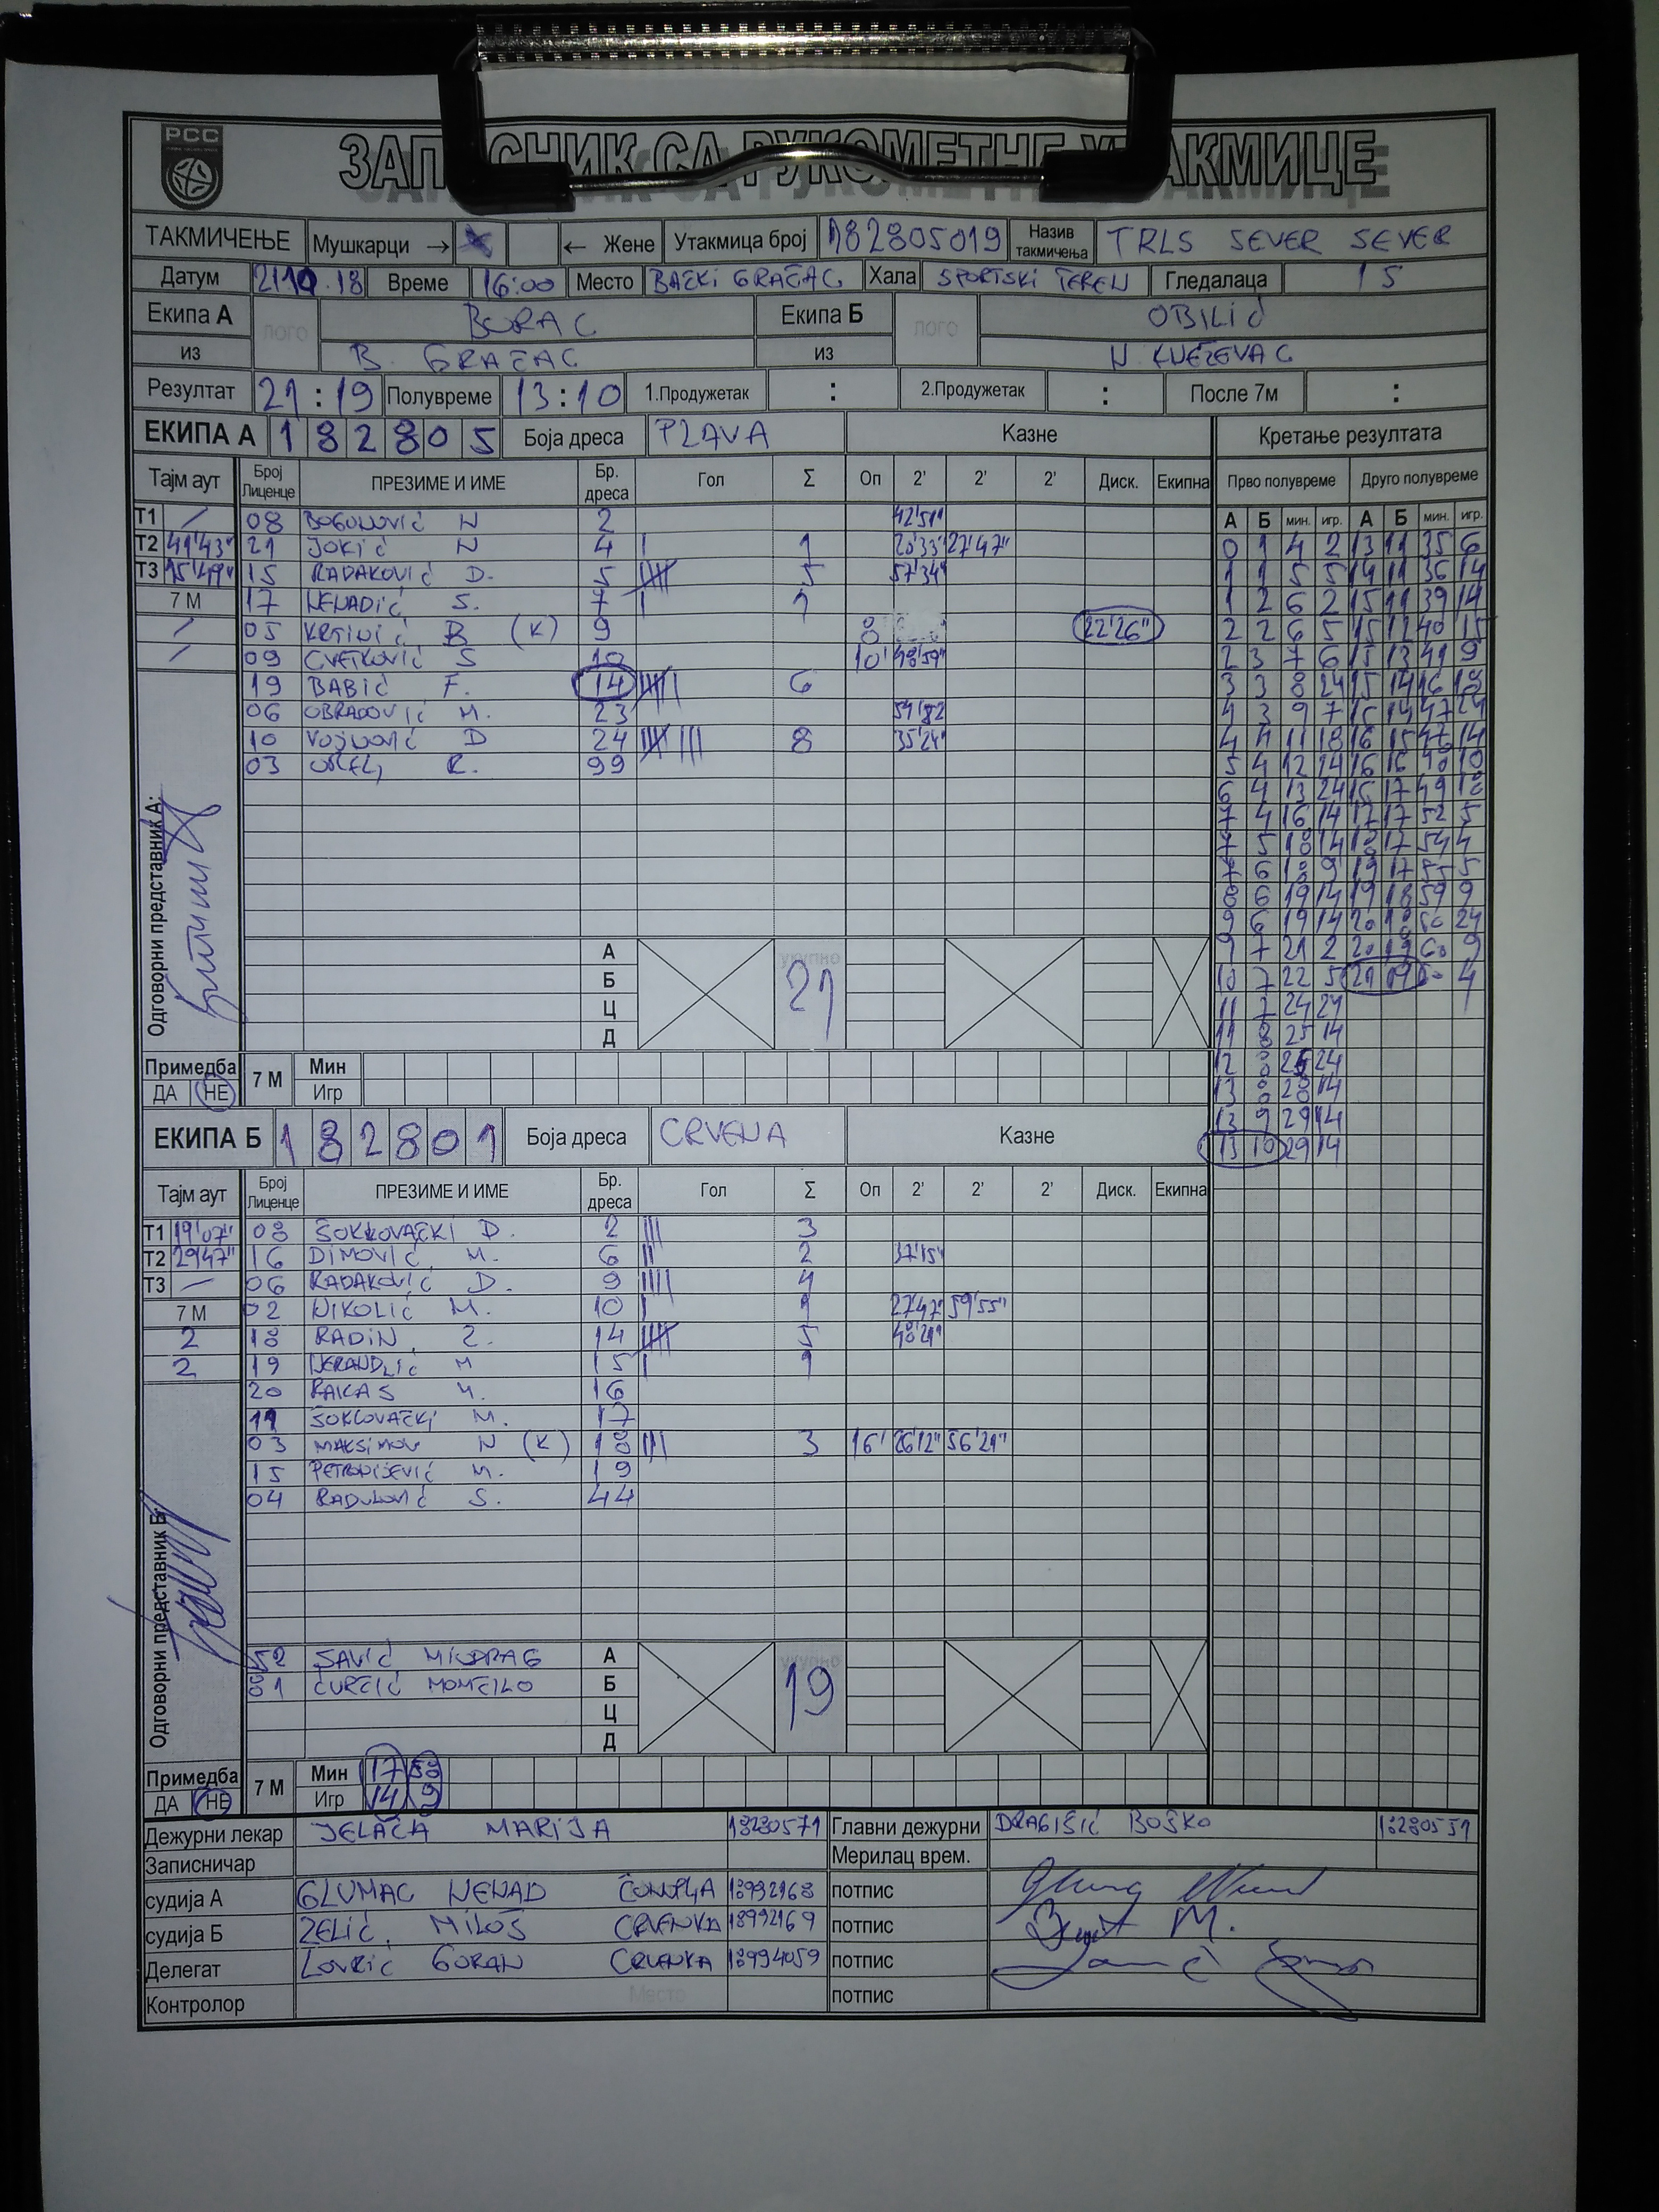 РСС
ЗАПИСНИК СА РУКОМЕТНЕ УТАКМИЦЕ
ТАКМИЧЕЊЕ Мушкарци → X ← Жене Утакмица број 182805019 Назив такмичења TRLS SEVER SEVER
Датум 21 10.18 Време 16:00 Место BAČKI GRAČAC Хала SPORTSKI TEREN Гледалаца 15
Екипа А лого BORAC Екипа Б лого OBILIĆ
из B. GRAČAC из N. KNEŽEVAC
Резултат 21:19 Полувреме 13:10 1.Продужетак : 2.Продужетак : После 7м :
ЕКИПА А 182805 Боја дреса PLAVA Казне Кретање резултата
Тајм аут Број Лиценце ПРЕЗИМЕ И ИМЕ Бр. дреса Гол Σ Оп 2' 2' 2' Диск. Екипна Прво полувреме Друго полувреме
А Б мин. игр. А Б мин. игр.
T1 / 08 N 2 42'51"
T2 41'43" 21 JOKIĆ N 4 | 1 27'47"
T3 15 RADAKOVIĆ D. 5 5 57'34"
7 М 17 NENADIĆ S. 7 | 1
/ 05 KRTINIĆ B (K) 9 8 22'26"
/ 09 CVETKOVIĆ S 10 10' 48'59"
19 BABIĆ F. 14 6
06 OBRADOVIĆ M. 23
10 D 24 8 35'24"
03 R. 99
0 1 4 2 13 11 35 6
1 1 5 5 14 11 36 14
1 2 6 2 15 11 39 14
2 2 6 5 15 12 40 15
2 3 7 6 15 13 41 9
3 3 8 24 15 14
4 3 9 7
4 4 11 18 16 15 47 14
5 4 12 14 16 16
6 4 13 24 16 17 49 18
7 4 16 14 17 17 52 5
7 5 18 14 18 17 54 4
7 6 18 9 19 17 5
8 6 19 14 19 18 59 9
9 6 19 14 20 18 24
9 7 21 2 20 19 60 9
10 7 22 5 21 19 4
11 7 24 24
11 8 25 14
12 8 24
13 8 28 14
13 9 29 14
13 10 29 14
Одговорни представник А:
А
Б
Ц
Д
укупно
21
Примедба ДА НЕ 7 М Мин
Игр
ЕКИПА Б 182801 Боја дреса CRVENA Казне
Тајм аут Број Лиценце ПРЕЗИМЕ И ИМЕ Бр. дреса Гол Σ Оп 2' 2' 2' Диск. Екипна
T1 19'07" 08 ŠOKLOVAČKI D. 2 ||| 3
T2 29'47" 16 DIMOVIĆ M. 6 || 2 37'15"
T3 – 06 RADAKOVIĆ D. 9 |||| 4
7 М 02 NIKOLIĆ M. 10 | 1 27'47" 59'55"
2 18 RADIN 14 5
2 19 NERANDŽIĆ M 15 | 1
20 RAKAS 16
11 ŠOKLOVAČKI M. 17
03 MAKSIMOV N (K) 18 ||| 3 16' 26'12" 56'21"
15 PETRONIJEVIĆ M. 19
04 RADULOVIĆ S. 44
Одговорни представник Б:
52 SAVIĆ MIODRAG А
81 ĆURČIĆ MOMČILO Б
Ц
Д
укупно
19
Примедба ДА НЕ 7 М Мин 17 58
Игр 14 9
Дежурни лекар JELAČA MARIJA 18280571 Главни дежурни DRAGIŠIĆ BOŠKO 18280551
Записничар Мерилац врем.
судија А GLUMAC NENAD ČONOPLJA 18992168 потпис
судија Б ZELIĆ MILOŠ CRVENKA 18992169 потпис
Делегат LOVRIĆ GORAN CRVENKA 18994059 потпис
Контролор Место потпис